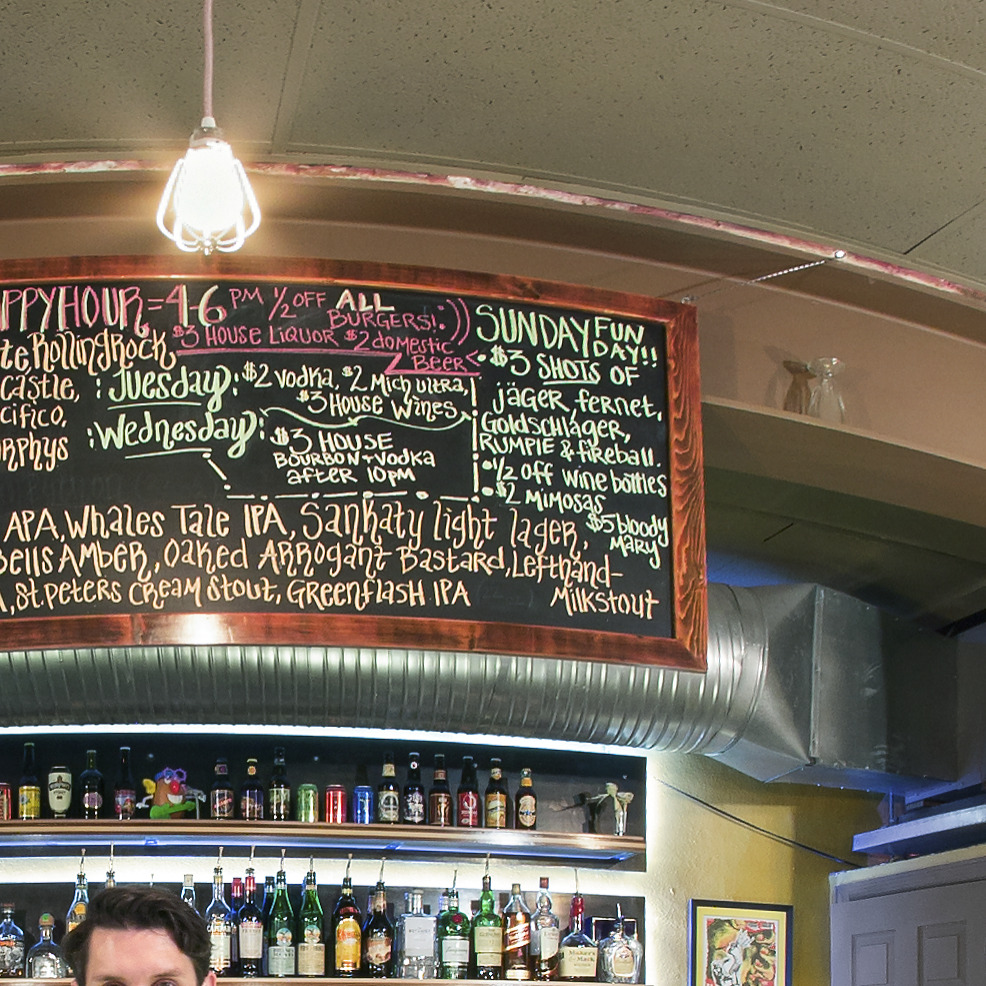 PPYHOUR=4-6 PM ½ OFF ALL BURGERS!:))
$3 HOUSE LIQUOR $2 domestic BEER
te, Rolling Rock,
castle,
cifico,
rphys
:Tuesday: $2 vodka, $2 Mich ultra,
$3 House Wines
:Wednesday: $3 HOUSE
BOURBON + Vodka
after 10pm
SUNDAY FUN
DAY!!
• $3 SHOTS OF
jäger, fernet,
Goldschläger,
RUMPLE & fireball.
• ½ off wine bottles
• $2 mimosas
$5 bloody
MARY
APA, Whales Tale IPA, Sankaty light lager,
Bells AMBER, Oaked ARROgant Bastard, Lefthand-
, St. Peters CReam Stout, GReenflasH IPA Milkstout
Maker's
Mark